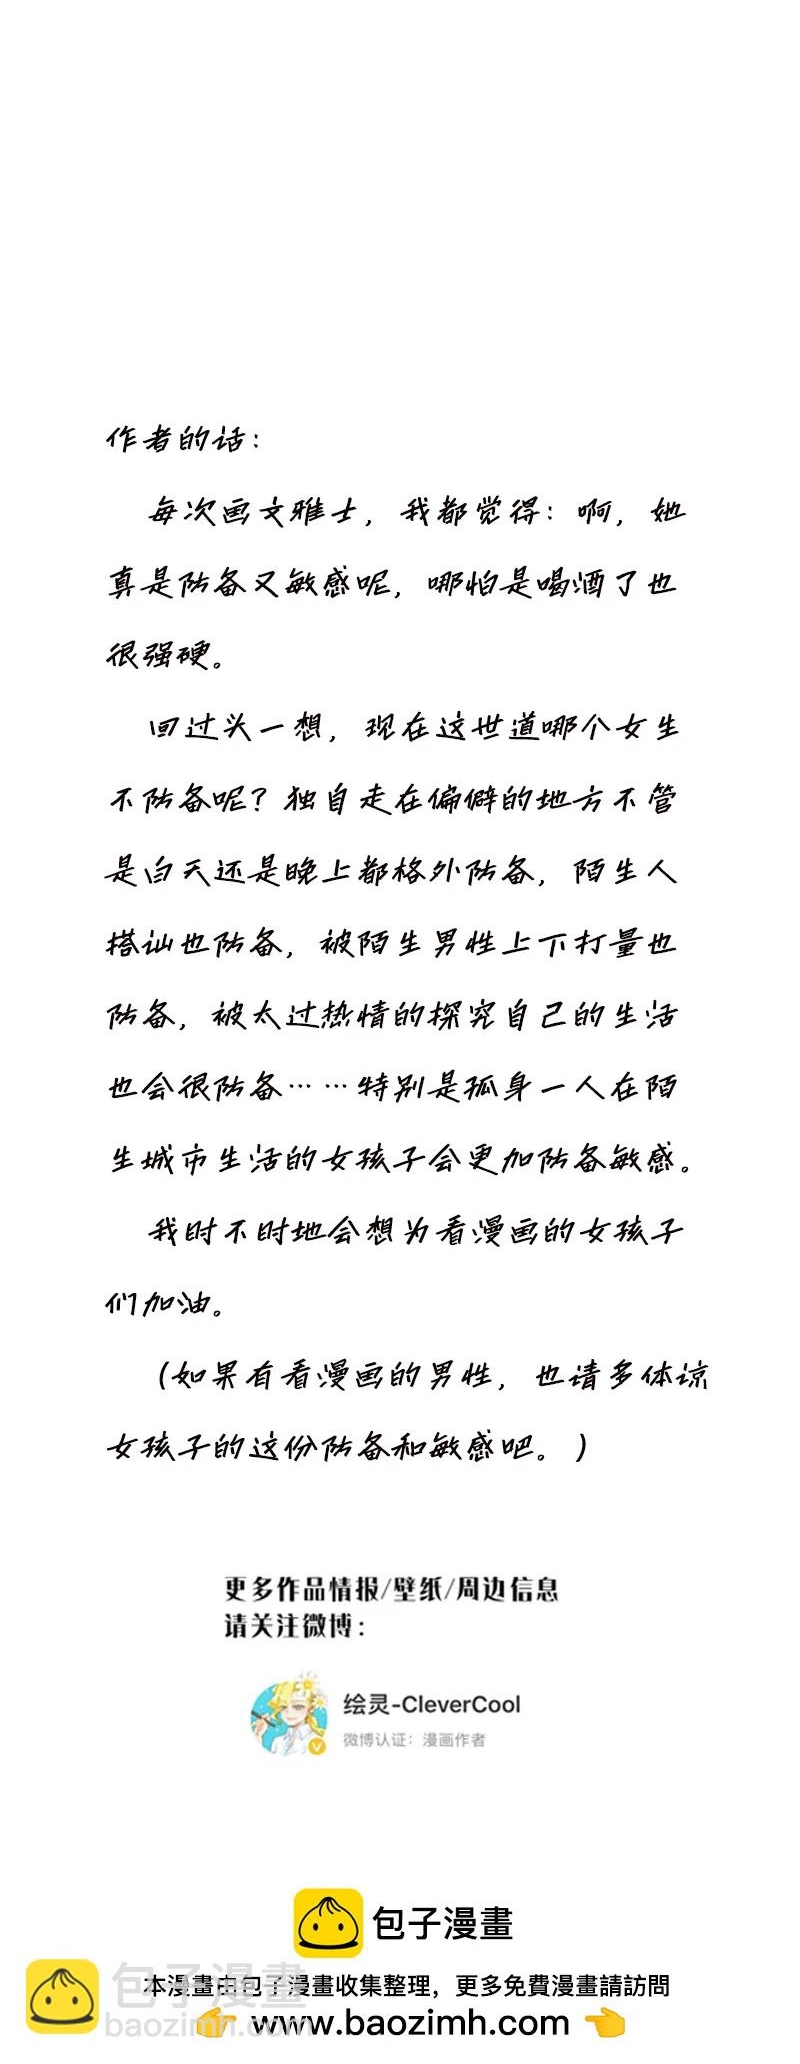 作者的话：
每次画文雅士，我都觉得：啊，她
真是防备又敏感呢，哪怕是喝酒了也
很强硬。
回过头一想，现在这世道哪个女生
不防备呢？独自走在偏僻的地方不管
是白天还是晚上都格外防备，陌生人
搭讪也防备，被陌生男性上下打量也
防备，被太过热情的探究自己的生活
也会很防备……特别是孤身一人在陌
生城市生活的女孩子会更加防备敏感。
我时不时地会想为看漫画的女孩子
们加油。
（如果有看漫画的男性，也请多体谅
女孩子的这份防备和敏感吧。）
更多作品情报/壁纸/周边信息
请关注微博：
绘灵-CleverCool
微博认证：漫画作者
包子漫畫
包子漫畫
本漫畫由包子漫畫收集整理，更多免費漫畫請訪問
baozimh.com
👉 www.baozimh.com 👈